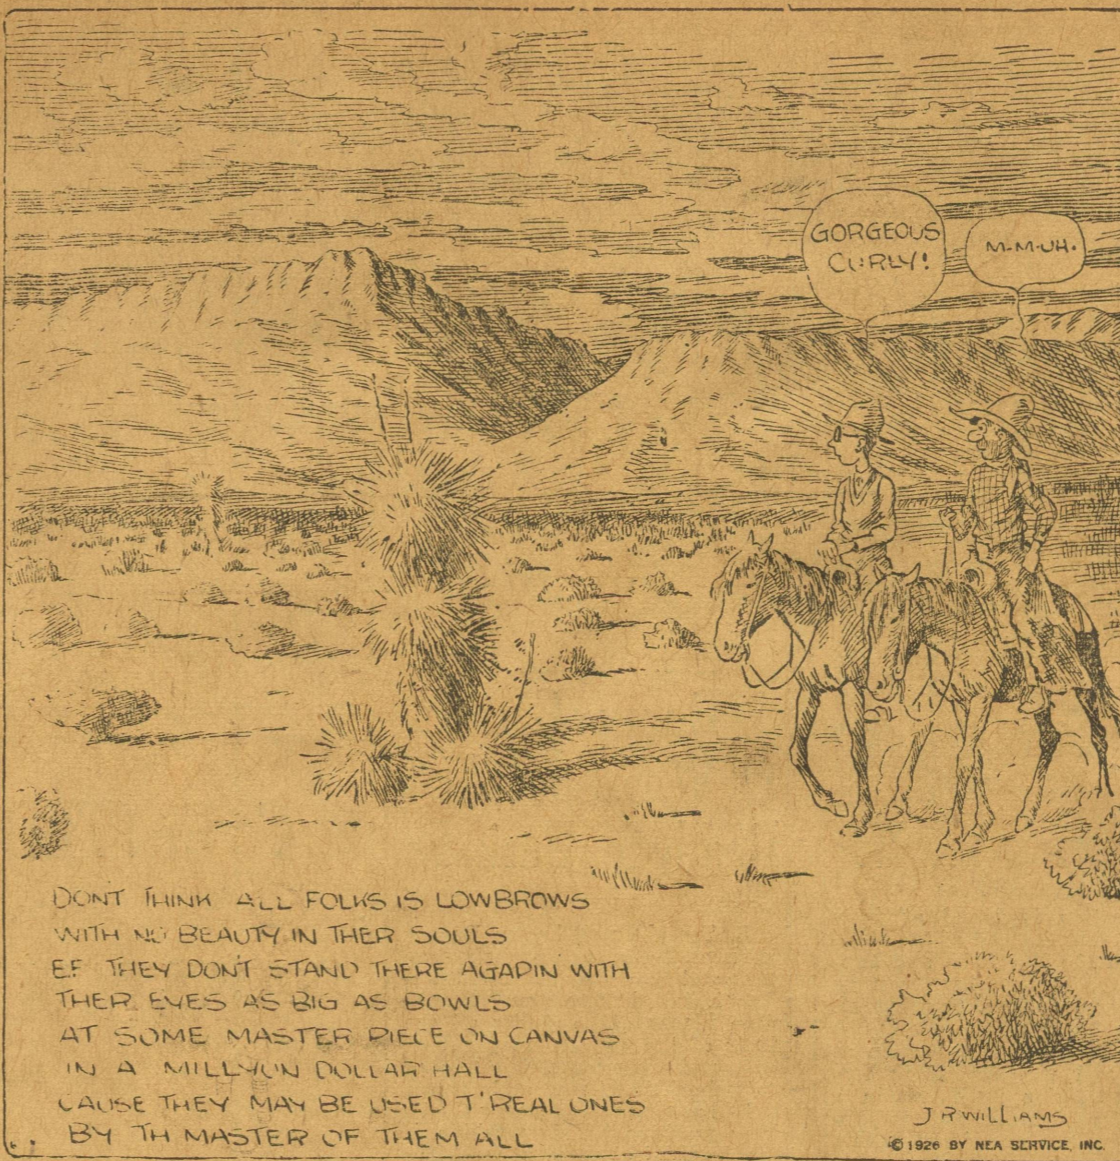 GORGEOUS
CURLY!
M-M-UH.
DON'T THINK ALL FOLKS IS LOWBROWS
WITH NO BEAUTY IN THER SOULS
EF THEY DON'T STAND THERE AGAPIN WITH
THER EYES AS BIG AS BOWLS
AT SOME MASTER PIECE ON CANVAS
IN A MILLYUN DOLLAR HALL
CAUSE THEY MAY BE USED T' REAL ONES
BY TH MASTER OF THEM ALL
J R WILLIAMS
© 1926 BY NEA SERVICE, INC.